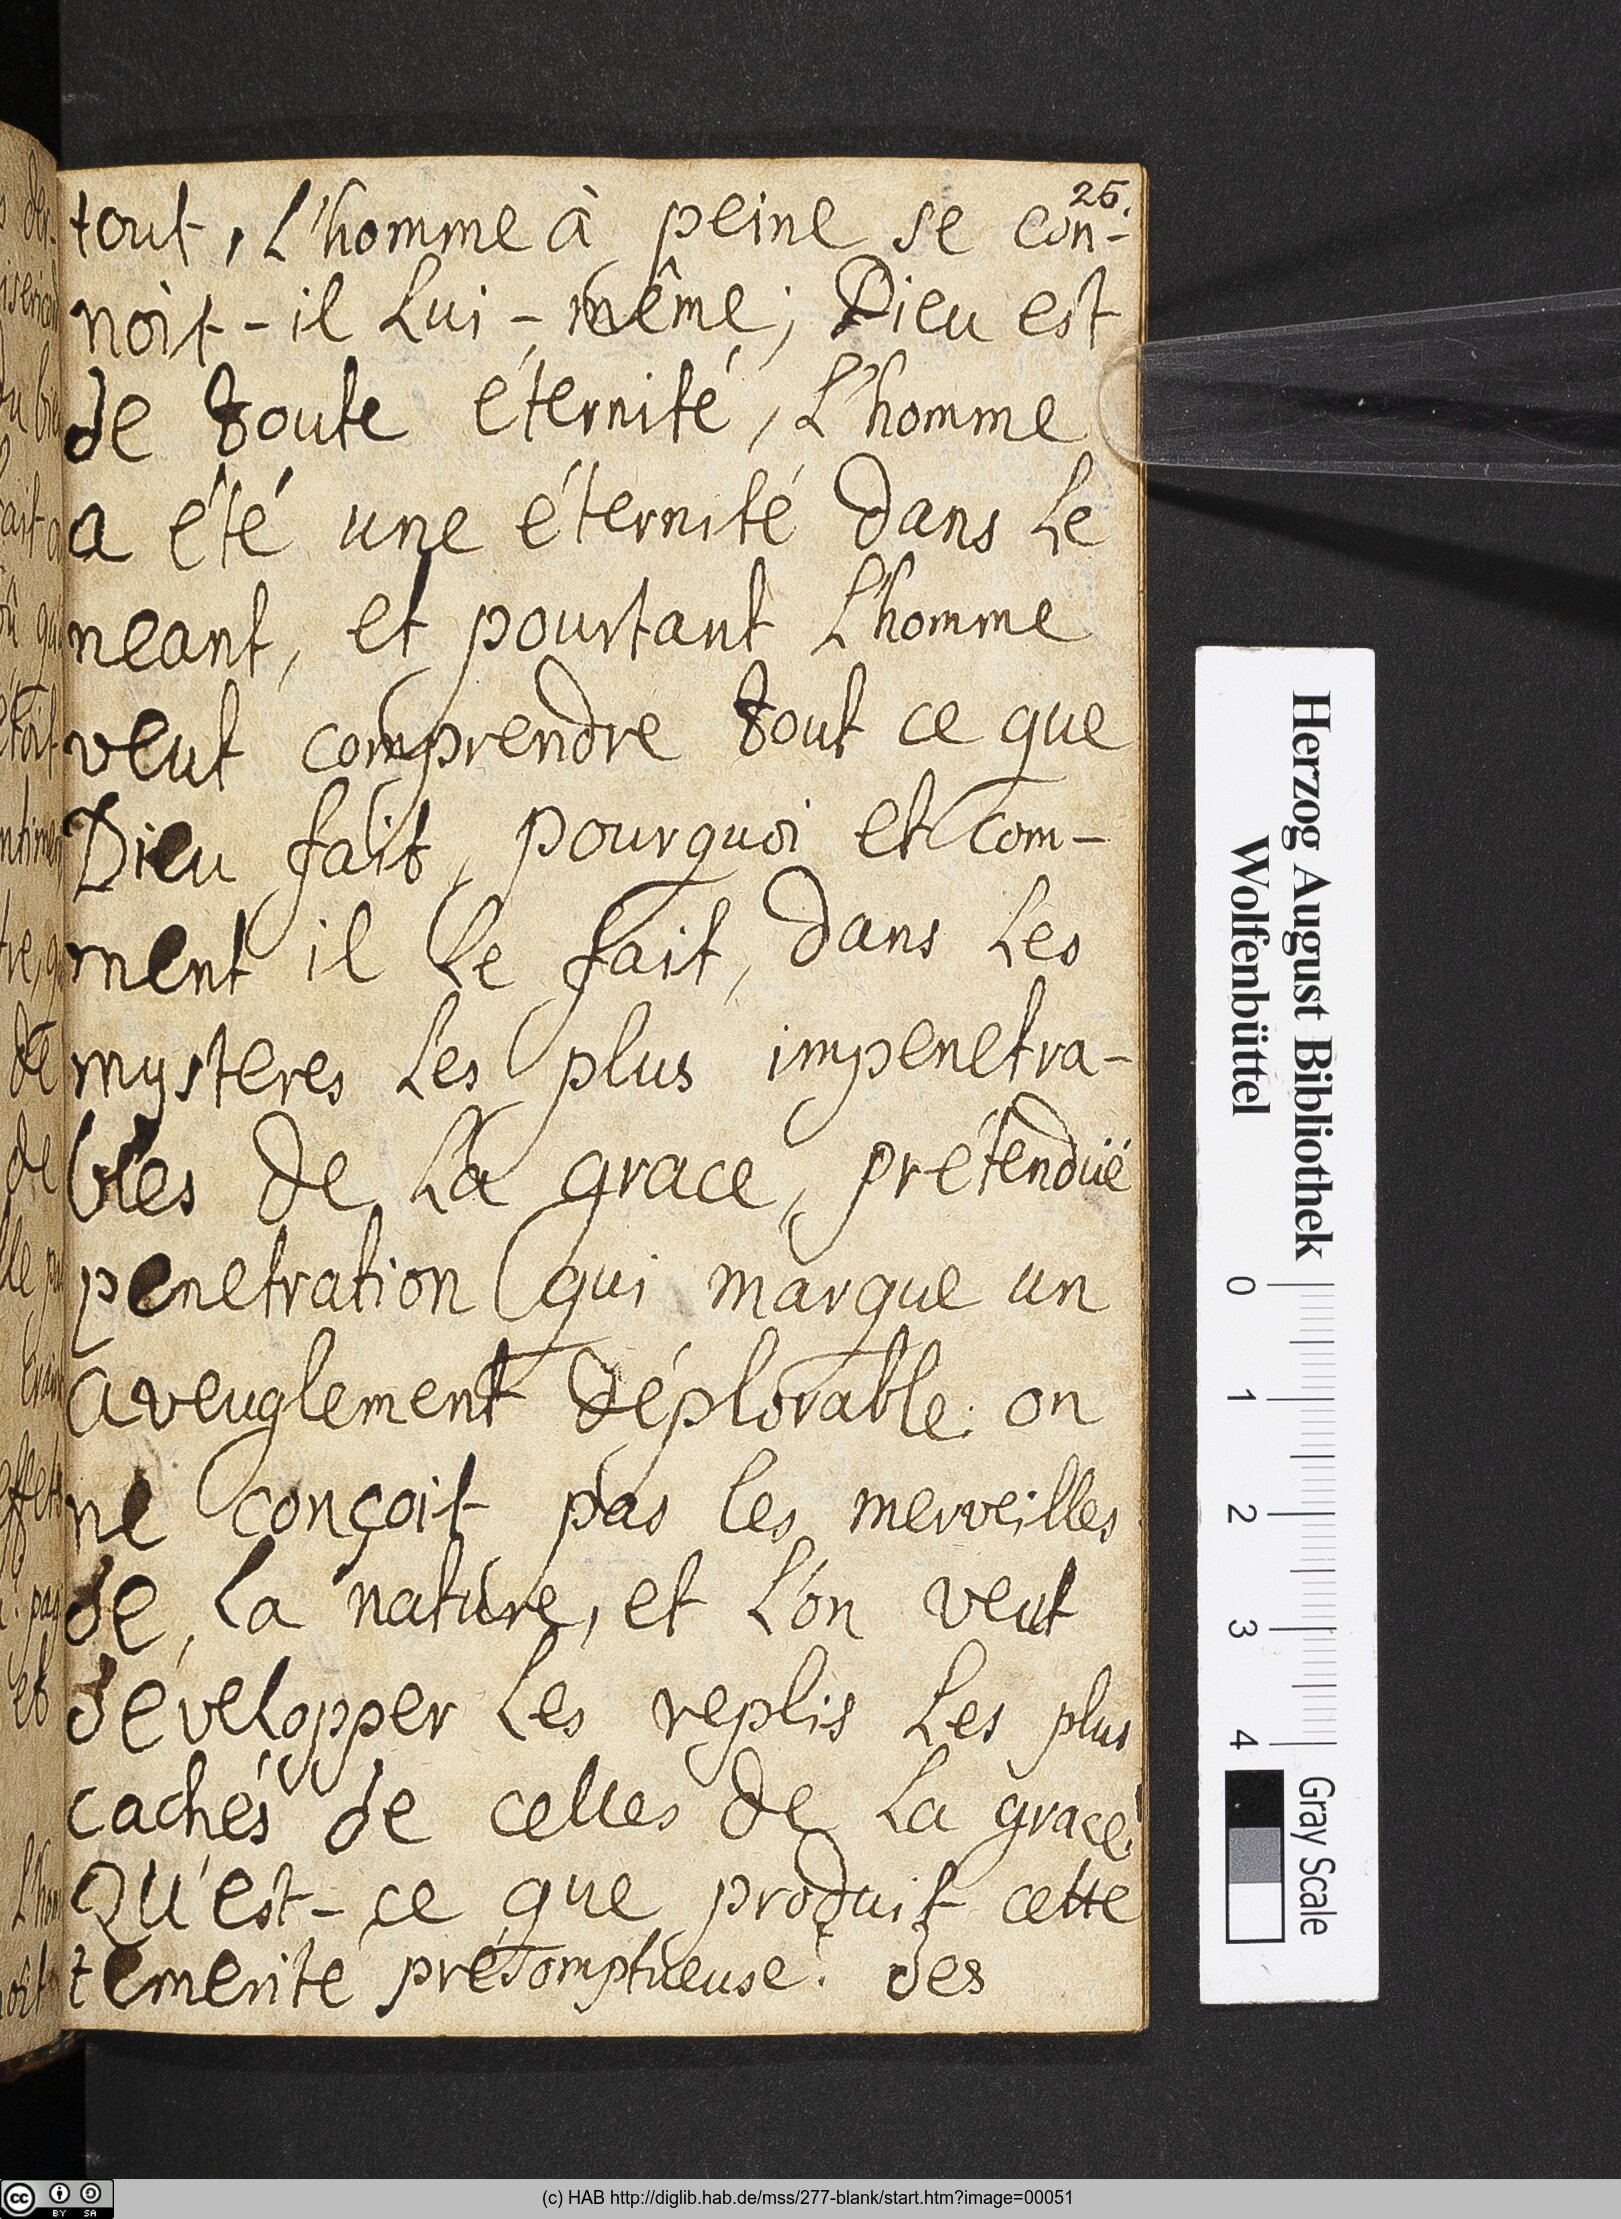 25.
tout, L'homme à peine se con-
noît-il Lui-même; Dieu est
de toute éternité, L'homme
a été une éternité dans Le
neant, et pourtant L'homme
veut comprendre tout ce que
Dieu fait, pourquoi et com-
ment il Le fait, dans Les
mysteres Les plus impenetra-
bles de La grace, prétenduë
penetration qui marque un
aveuglement déplorable. on
ne conçoit pas les merveilles
de La nature, et L'on veut
développer Les replis Les plus
cachés de celles de La grace!
Qu'est-ce que produit cette
temerité présomptueuse? des
Herzog August Bibliothek
Wolfenbüttel
0 1 2 3 4
Gray Scale
cc BY SA
(c) HAB http://diglib.hab.de/mss/277-blank/start.htm?image=00051